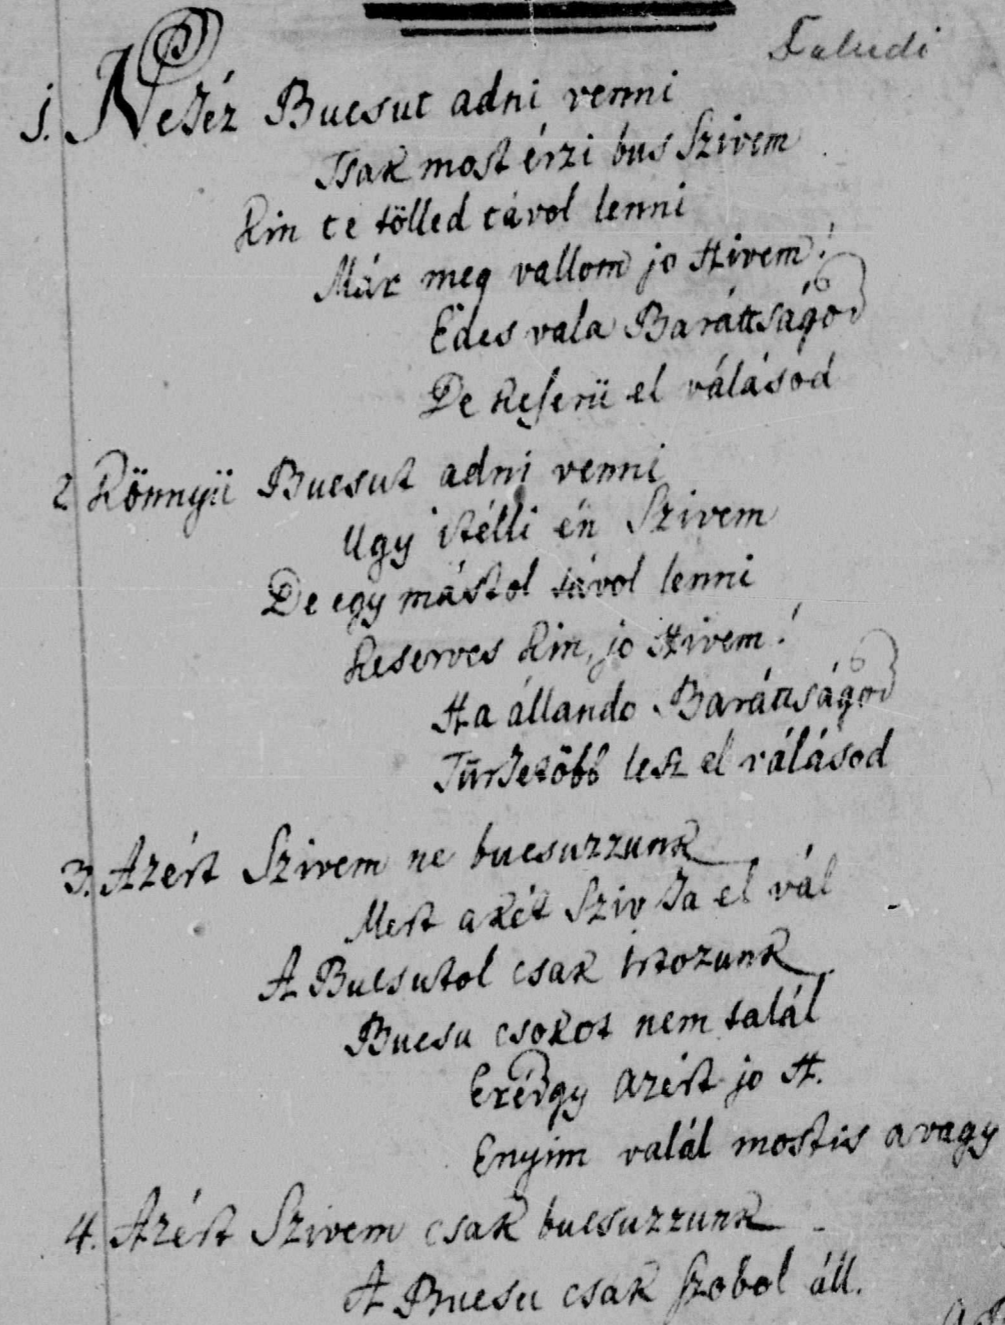 Faludi
1. Nehéz Bucsut adni venni
Tsak most érzi bus Szivem
Kin te tölled távol lenni
Már meg vallom jo Hivem!
Edes vala Baráttságod
De keserü el válásod
2 Könnyü Bucsut adni venni
Ugy itélli én Szivem
De egy mástol távol lenni
Keserves kin, jo Hivem!
Ha állando Baráttságod
Türhetöbb lesz el válásod
3. Azért Szivem ne bucsuzzunk
Mert a két Sziv ha el vál
A Bucsutol csak irtozunk
Bucsu csokot nem talál
Eredgy azért jo H.
Enyim valál mostis a vagy
4. Azért Szivem csak bucsuzzunk
A Bucsu csak szobol áll.